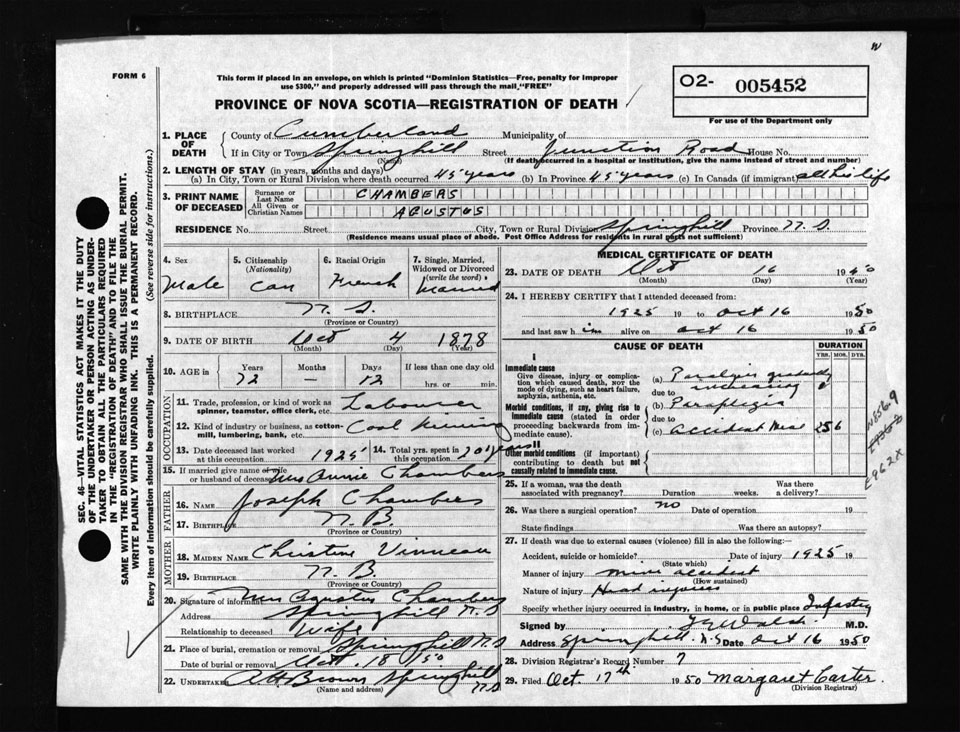 W
FORM 6
This form if placed in an envelope, on which is printed "Dominion Statistics—Free, penalty for improper
use $300," and properly addressed will pass through the mail "FREE"
PROVINCE OF NOVA SCOTIA—REGISTRATION OF DEATH
O2- 005452
For use of the Department only
SEC. 46—VITAL STATISTICS ACT MAKES IT THE DUTY
OF THE UNDERTAKER OR PERSON ACTING AS UNDER-
TAKER TO OBTAIN ALL THE PARTICULARS REQUIRED
IN THE "REGISTRATION OF DEATH" AND TO FILE THE
SAME WITH THE DIVISION REGISTRAR WHO SHALL ISSUE THE BURIAL PERMIT.
WRITE PLAINLY WITH UNFADING INK. THIS IS A PERMANENT RECORD.
Every item of information should be carefully supplied. (See reverse side for instructions.)
1. PLACE OF DEATH County of Cumberland Municipality of
If in City or Town Springhill Street Junction Road House No.
(Name) (If death occurred in a hospital or institution, give the name instead of street and number)
2. LENGTH OF STAY (in years, months and days)
(a) In City, Town or Rural Division where death occurred 45 years (b) In Province 45 years (c) In Canada (if immigrant) all his life
3. PRINT NAME OF DECEASED Surname or Last Name CHAMBERS
All Given or Christian Names AGUSTUS
RESIDENCE No. Street City, Town or Rural Division Springhill Province N. S.
(Residence means usual place of abode. Post Office Address for residents in rural parts not sufficient)
4. Sex Male
5. Citizenship (Nationality) Can
6. Racial Origin French
7. Single, Married, Widowed or Divorced (write the word) Married
8. BIRTHPLACE N. S.
(Province or Country)
9. DATE OF BIRTH Oct 4 1878
(Month) (Day) (Year)
10. AGE in Years 72 Months — Days 12 If less than one day old hrs. or min.
OCCUPATION
11. Trade, profession, or kind of work as spinner, teamster, office clerk, etc. Labourer
12. Kind of industry or business, as cotton-mill, lumbering, bank, etc. Coal mining
13. Date deceased last worked at this occupation 1925
14. Total yrs. spent in this occupation 20 years
15. If married give name of wife or husband of deceased Mrs Annie Chambers
FATHER
16. Name Joseph Chambers
17. Birthplace N. B.
(Province or Country)
MOTHER
18. Maiden Name Christine Vinneau
19. Birthplace N. B.
(Province or Country)
20. Signature of informant Mrs Agustus Chambers
Address Springhill N. S
Relationship to deceased Wife
21. Place of burial, cremation or removal Springhill N. S
Date of burial or removal Oct. 18 /50
22. Undertaker A. H. Brown Springhill N S
(Name and address)
MEDICAL CERTIFICATE OF DEATH
23. DATE OF DEATH Oct 16
(Month) (Day) (Year)
24. I HEREBY CERTIFY that I attended deceased from:
1925 19 to Oct 16 1950
and last saw h im alive on Oct 16 1950
CAUSE OF DEATH DURATION
YRS. MOS. DYS.
I
Immediate cause
Give disease, injury or complication which caused death, NOT the mode of dying, such as heart failure, asphyxia, asthenia, etc.
(a) Paralysis gradually increasing
due to
Morbid conditions, if any, giving rise to immediate cause (stated in order proceeding backwards from immediate cause).
(b) Paraplegia
due to
(c) Accident Mine 25 6
II
Other morbid conditions (if important) contributing to death but not causally related to immediate cause.
N856.9
E962X
25. If a woman, was the death associated with pregnancy? Duration weeks. Was there a delivery?
26. Was there a surgical operation? no Date of operation 19
State findings Was there an autopsy?
27. If death was due to external causes (violence) fill in also the following:—
Accident, suicide or homicide? Date of injury 1925 19
(State which)
Manner of injury mine accident
(How sustained)
Nature of injury Head injuries
Specify whether injury occurred in industry, in home, or in public place Industry
Signed by Walsh M.D.
Address Springhill N. S Date Oct 16 1950
28. Division Registrar's Record Number 7
29. Filed Oct. 17th 1950 Margaret Carter.
(Division Registrar)